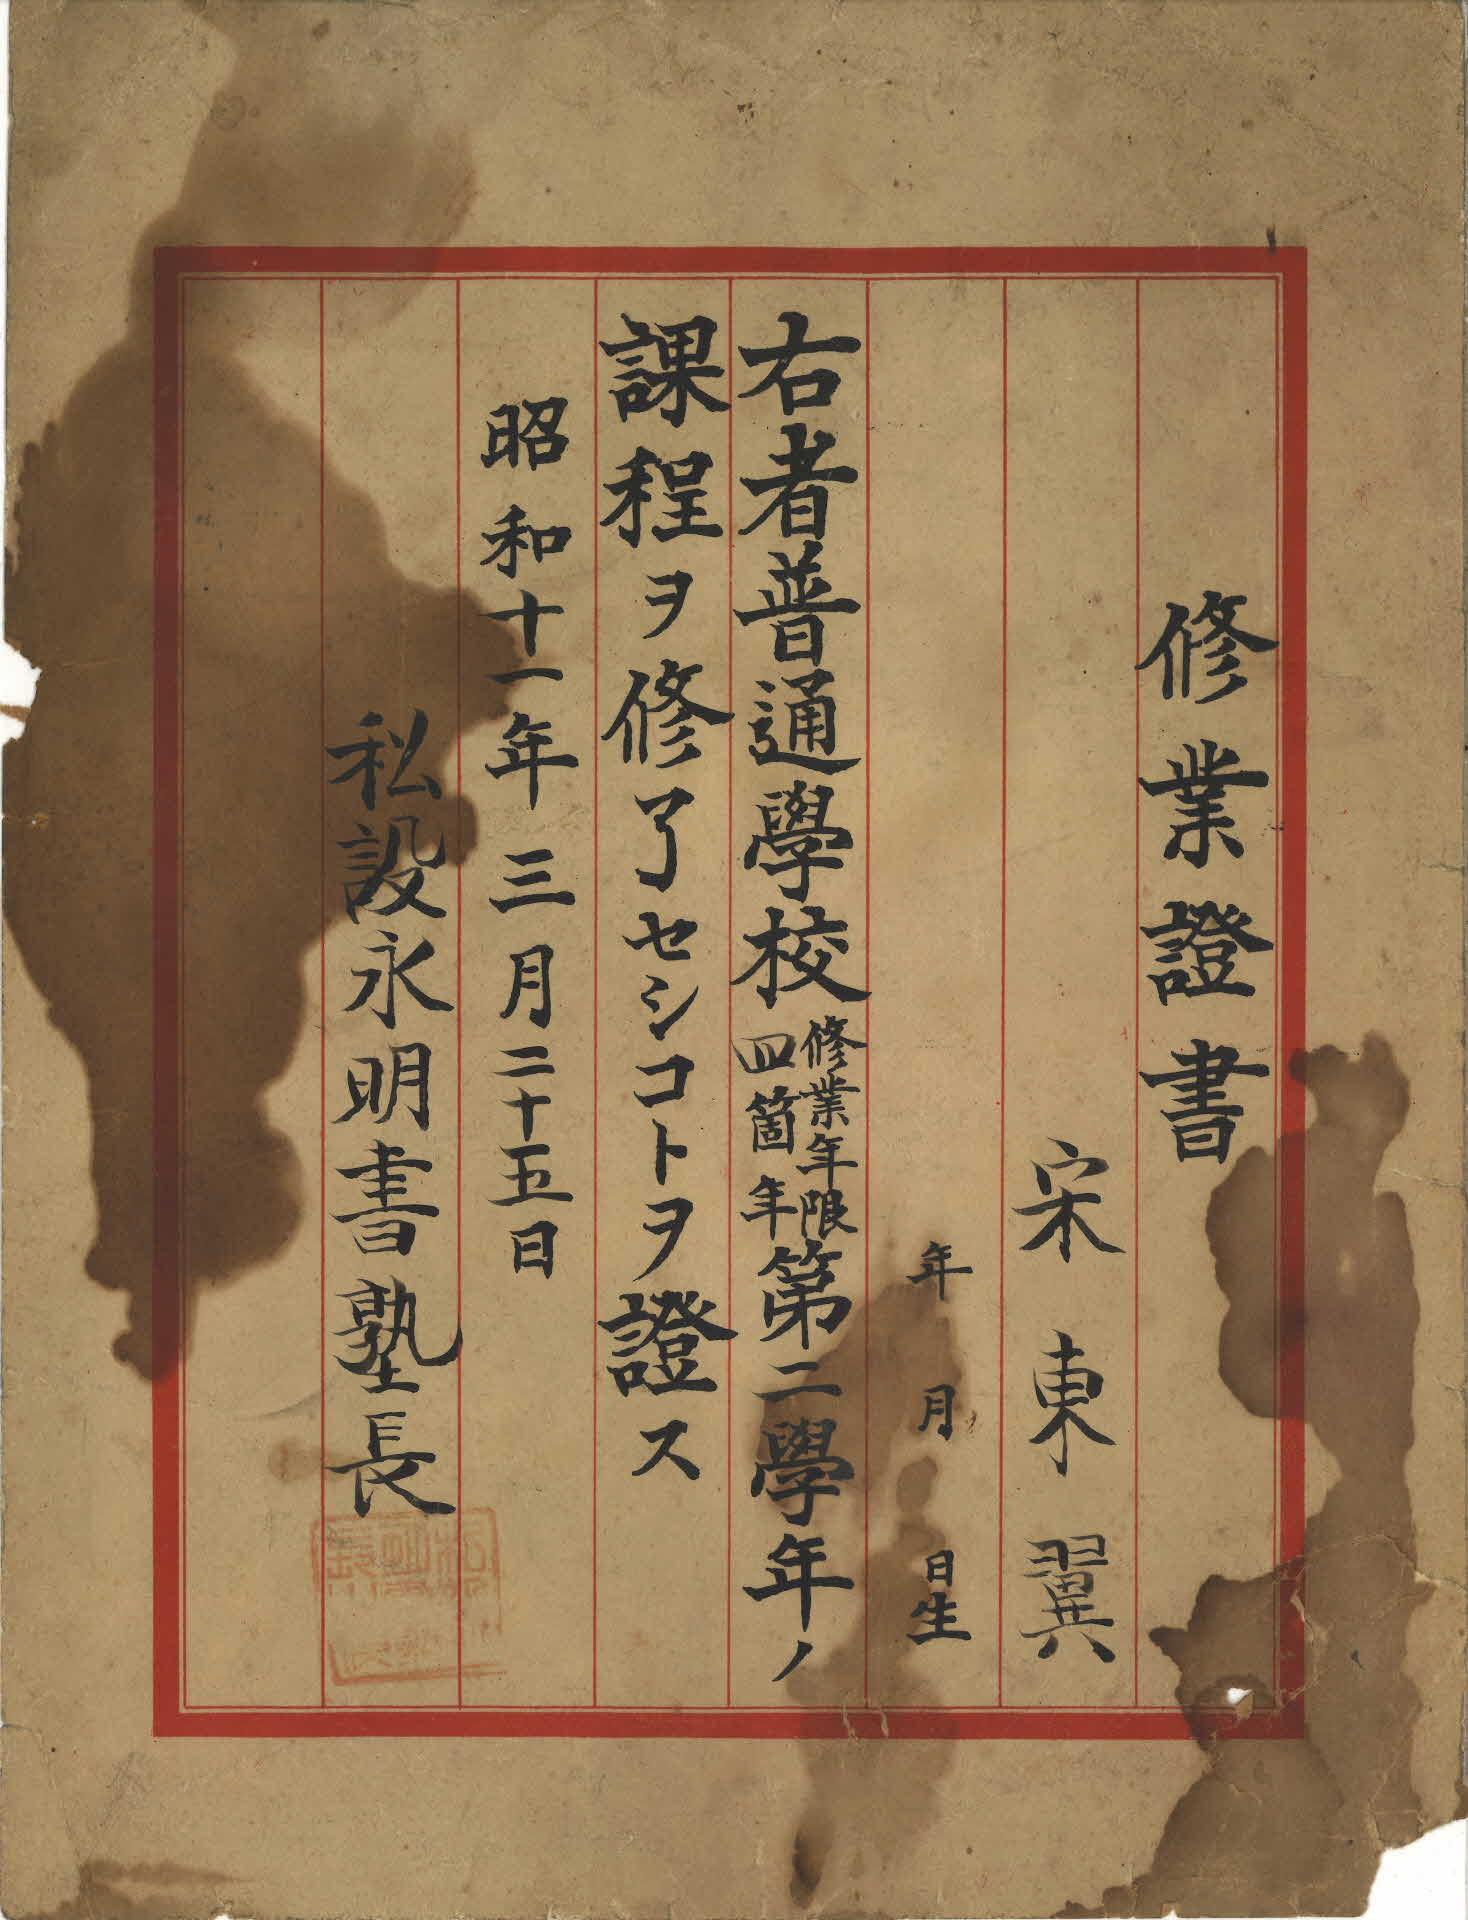 修業證書
宋東翼
年月日生
右者普通學校修業年限四箇年第二學年ノ
課程ヲ修了セシコトヲ證ス
昭和十一年三月二十五日
私設永明書塾長